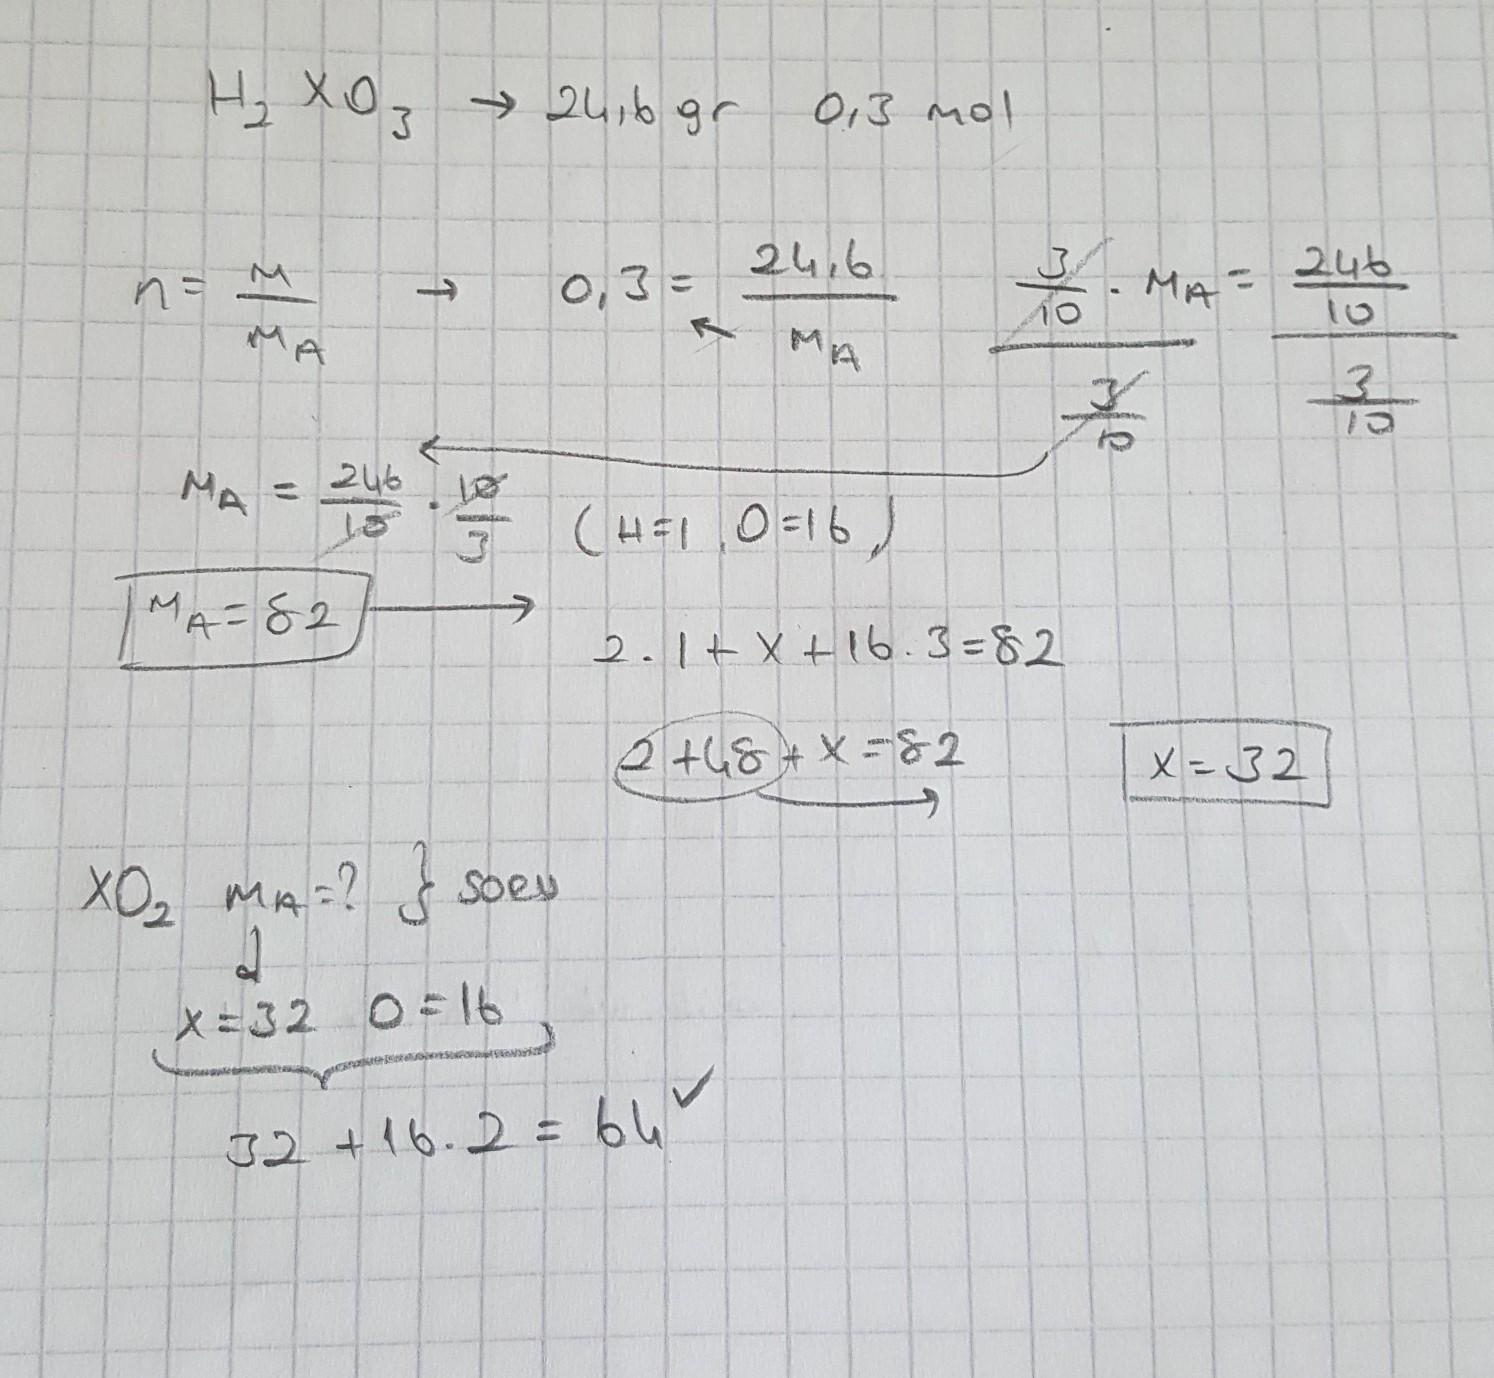 H₂XO₃ → 24,6 gr 0,3 mol
n = M/MA → 0,3 = 24,6/MA 3/10 . MA = 246/10
3/10 3/10
MA = 246/10 . 10/3 (H=1, O=16)
MA = 82 →
2.1 + X + 16.3 = 82
2 + 48 + X = 82 X = 32
XO₂ MA = ? }
X = 32 O = 16
32 + 16.2 = 64 ✓